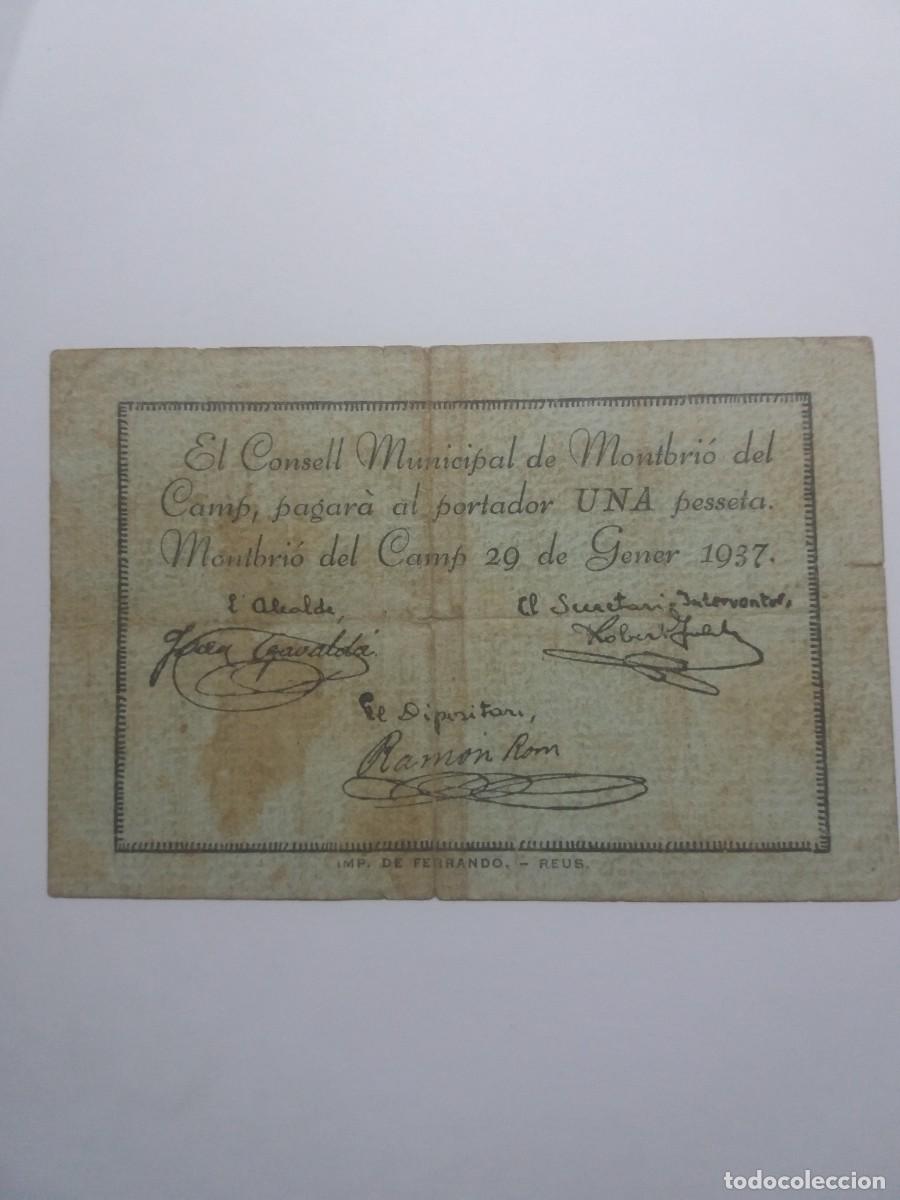 El Consell Municipal de Montbrió del
Camp, pagarà al portador UNA pesseta.
Montbrió del Camp 29 de Gener 1937.
L'Alcalde,
El Secretari Interventor,
Joan Gavaldá
Robert
El Dipositari,
Ramón Rom
IMP. DE FERRANDO. - REUS.
todocoleccion